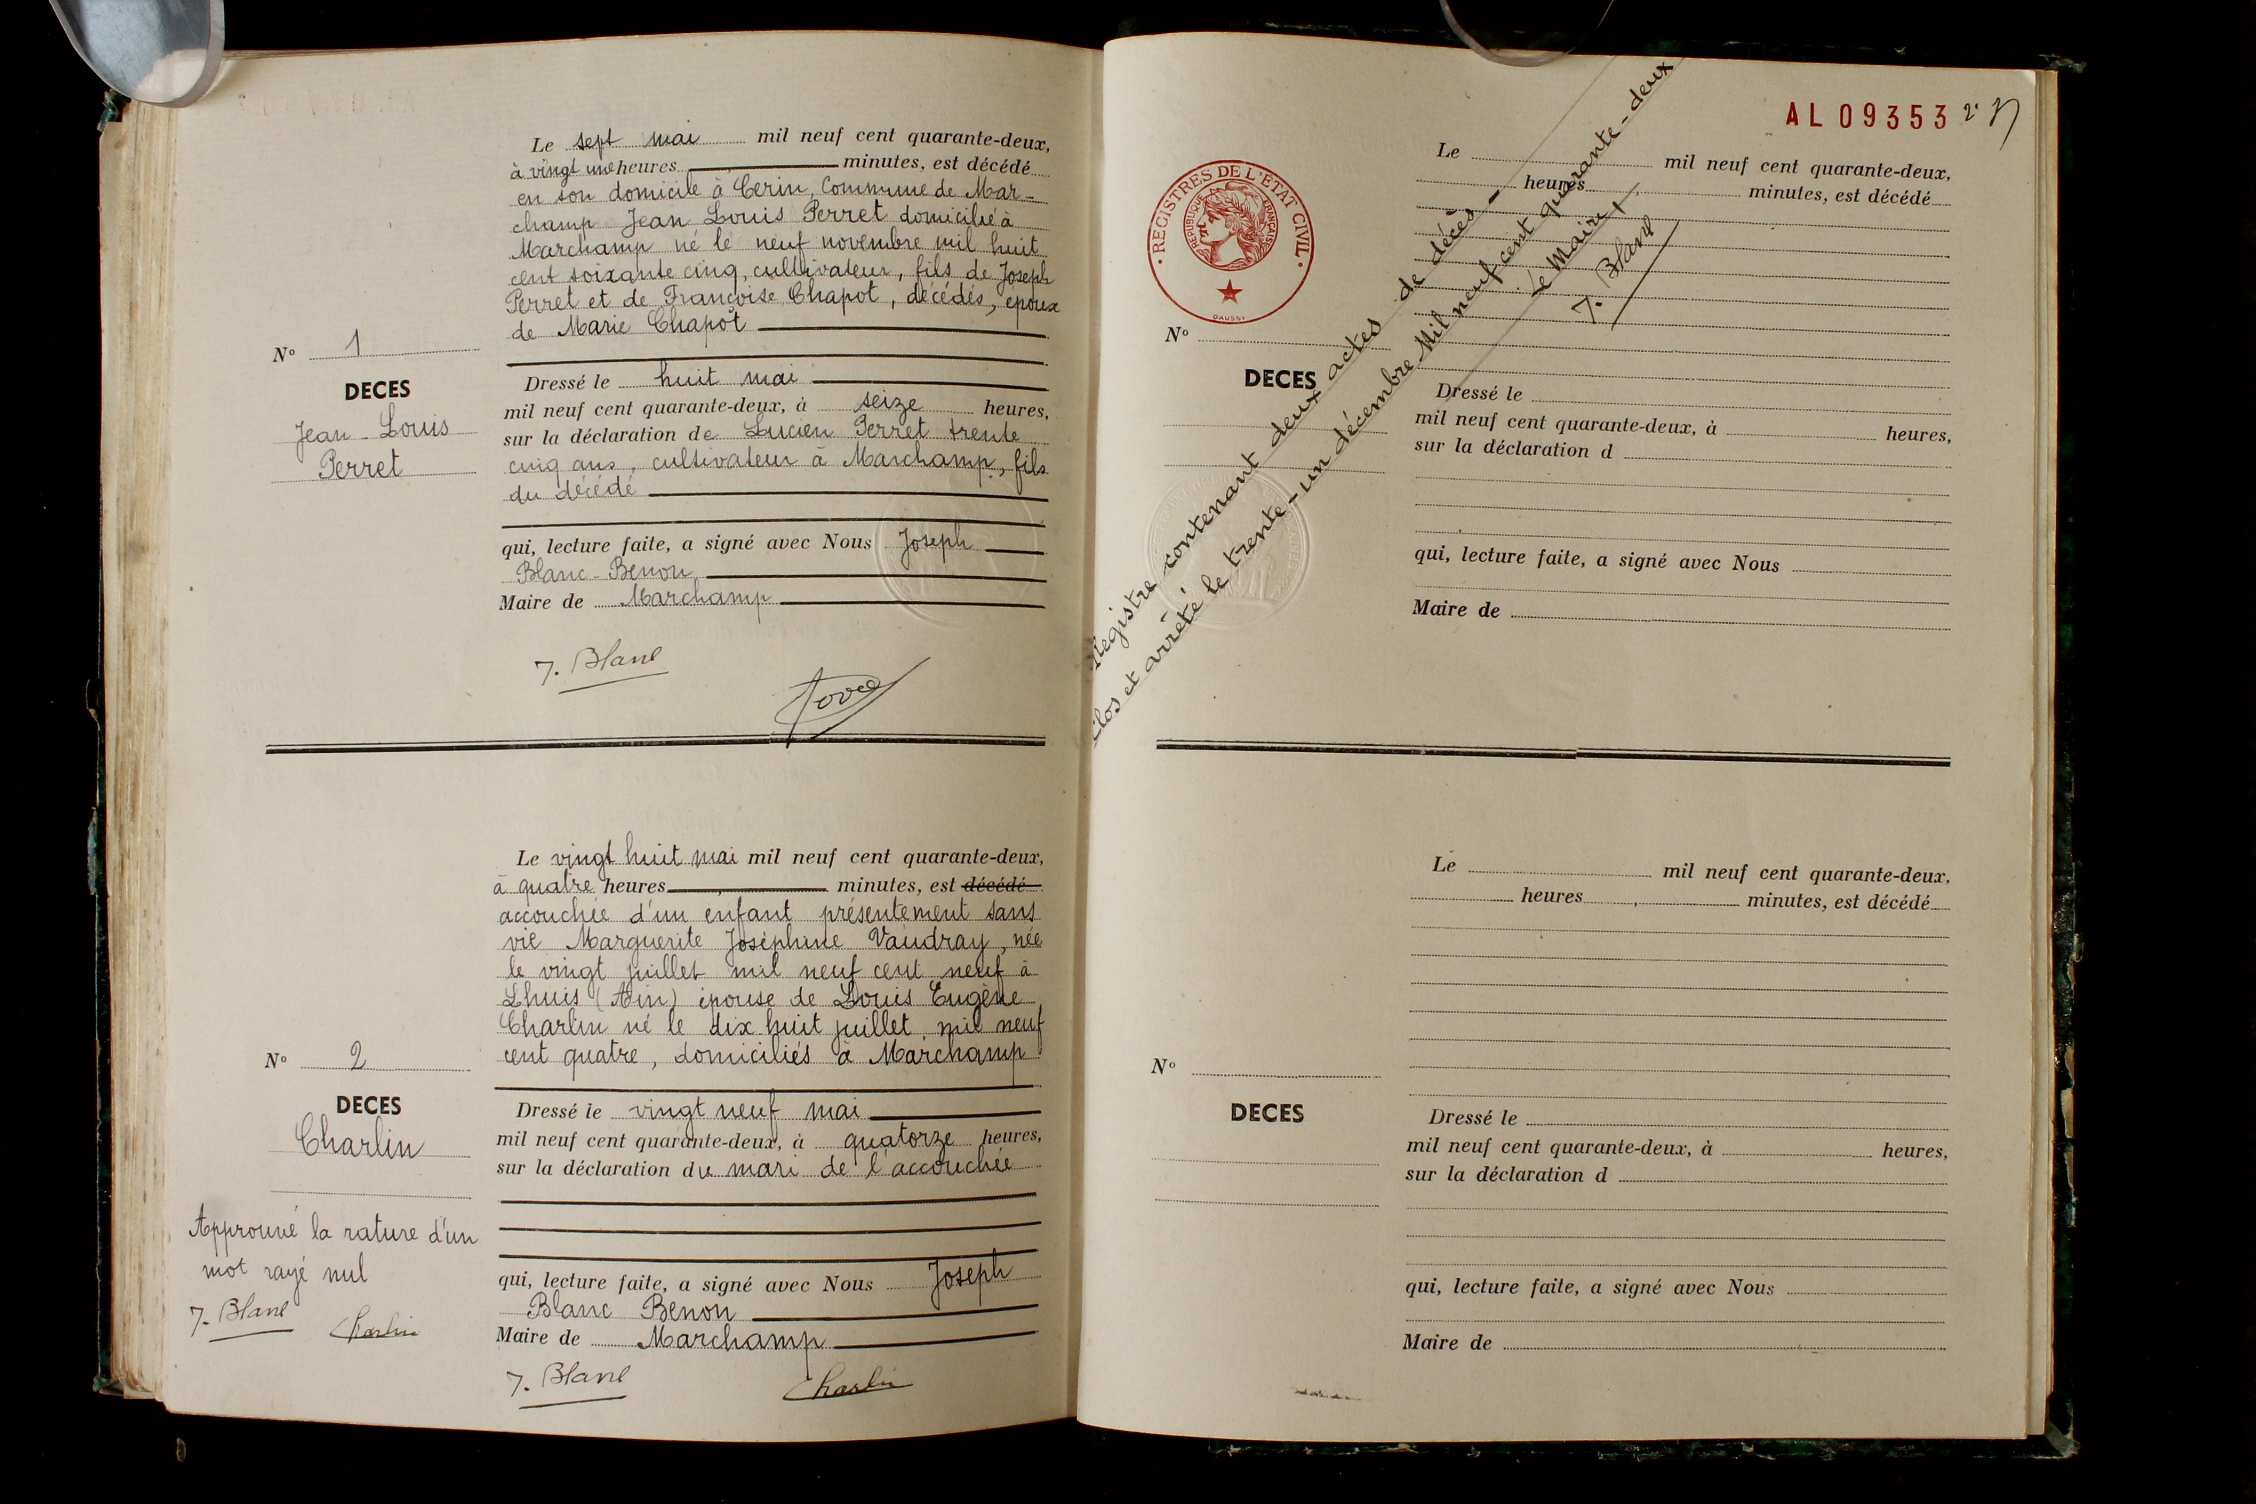 Le sept mai mil neuf cent quarante-deux,
à vingt une heures minutes, est décédé
en son domicile à Cerin, Commune de Mar-
champ Jean Louis Perret domicilié à
Marchamp né le neuf novembre mil huit
cent soixante cinq, cultivateur, fils de Joseph
Perret et de Françoise Chapot, décédés, époux
de Marie Chapot
N° 1
DECES
Jean-Louis
Perret
Dressé le huit mai
mil neuf cent quarante-deux, à seize heures,
sur la déclaration de Lucien Perret trente
cinq ans, cultivateur à Marchamp, fils
du décédé
qui, lecture faite, a signé avec Nous Joseph
Blanc-Benon
Maire de Marchamp
J. Blanc
Le vingt huit mai mil neuf cent quarante-deux,
à quatre heures minutes, est décédé
accouchée d'un enfant présentement sans
vie Marguerite Joséphine Vaudray, née
le vingt juillet mil neuf cent neuf à
Lhuis (Ain) épouse de Louis Eugène
Charlin né le dix huit juillet mil neuf
cent quatre, domiciliés à Marchamp
N° 2
DECES
Charlin
Dressé le vingt neuf mai
mil neuf cent quarante-deux, à quatorze heures,
sur la déclaration du mari de l'accouchée
Approuvé la rature d'un
mot rayé nul
J. Blanc Charlin
qui, lecture faite, a signé avec Nous Joseph
Blanc Benon
Maire de Marchamp
J. Blanc Charlin
AL 09353
REGISTRES DE L'ETAT CIVIL
REPUBLIQUE FRANÇAISE
DAUSSY
Le mil neuf cent quarante-deux,
heures minutes, est décédé
N°
DECES
Dressé le
mil neuf cent quarante-deux, à heures,
sur la déclaration d
qui, lecture faite, a signé avec Nous
Maire de
Registre contenant deux actes de décès
Clos et arrêté le trente-un décembre Mil neuf cent quarante-deux
Le Maire,
J. Blanc
Le mil neuf cent quarante-deux,
heures minutes, est décédé
N°
DECES
Dressé le
mil neuf cent quarante-deux, à heures,
sur la déclaration d
qui, lecture faite, a signé avec Nous
Maire de